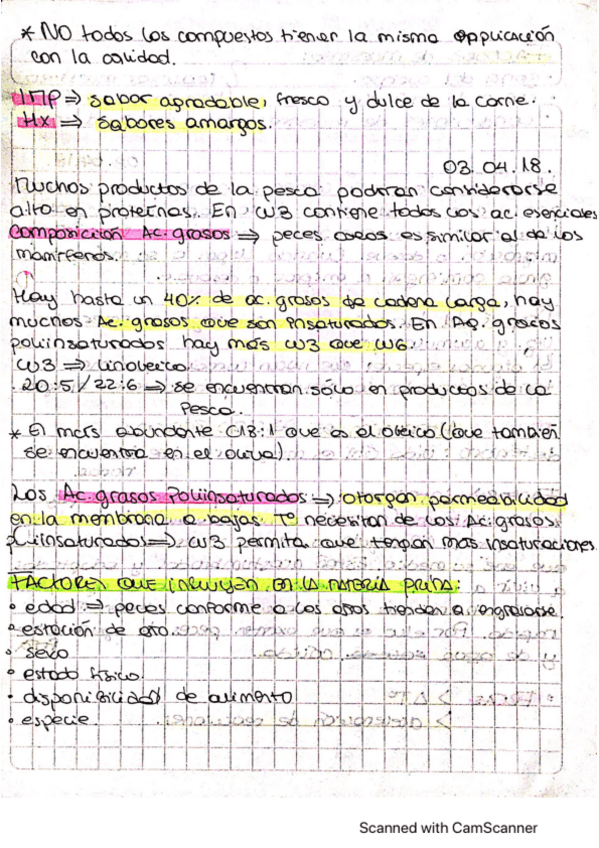 * NO todos los compuestos tienen la misma applicación
con la calidad.
IMP => sabor agradable, fresco y dulce de la carne.
Hx => sabores amargos.
03.04.18.
Muchos productos de la pesca podrían considerarse
alto en proteínas. En W3 contiene todos los ac. esenciales
Composición Ac. grasos => peces óseos es similar al de los
mamíferos.
Hay hasta un 40% de ac. grasos de cadena larga, hay
muchos Ac. grasos que son insaturados. En Ac. grasos
poliinsaturados hay más W3 que W6.
W3 => linoleico
20:5/22:6 => se encuentran sólo en productos de la
Pesca.
* El más abundante C18:1 que es el oleico (que también
se encuentra en el oliva).
Los Ac. grasos Poliinsaturados => otorgan permeabilidad
en la membrana a bajas Tº necesitan de los Ac. grasos
Poliinsaturados => W3 permita que tengan más insaturaciones.
FACTORES QUE INFLUYEN EN LA MATERIA PRIMA:
• edad => peces conforme a los años tienden a engrasarse.
• estación de año.
• sexo
• estado físico.
• disponibilidad de alimento
• especie
Scanned with CamScanner